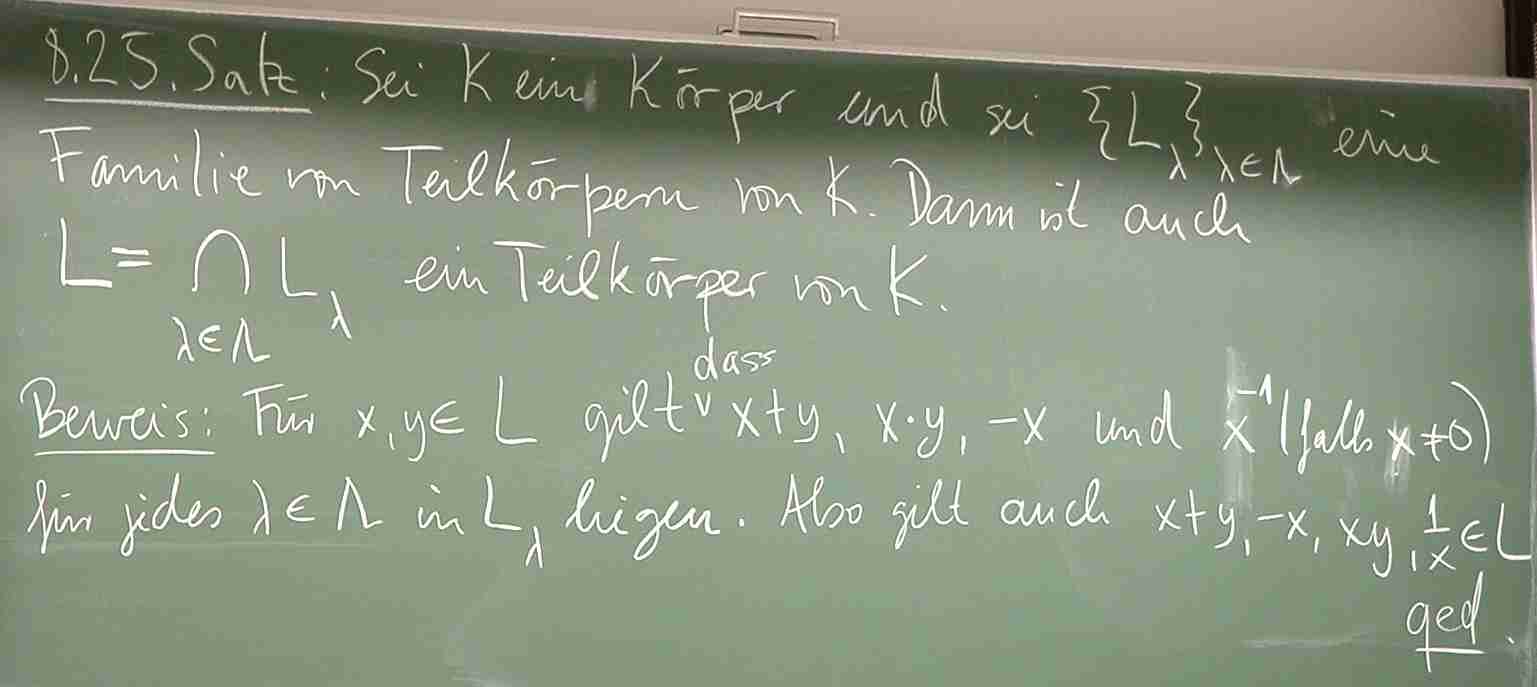 8.25. Satz: Sei K ein Körper und sei {L_λ}_{λ∈Λ} eine
Familie von Teilkörpern von K. Dann ist auch
L = ⋂_{λ∈Λ} L_λ ein Teilkörper von K.
Beweis: Für x, y ∈ L gilt dass x+y, x·y, -x und x^{-1} (falls x ≠ 0)
für jedes λ ∈ Λ in L_λ liegen. Also gilt auch x+y, -x, xy, 1/x ∈ L
qed.